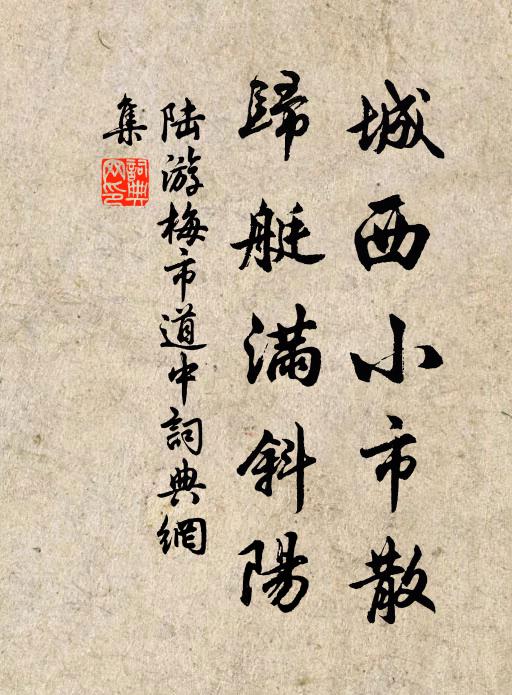 城西小市散
歸艇滿斜陽
陸游梅市道中詞典網
集
詞典網印